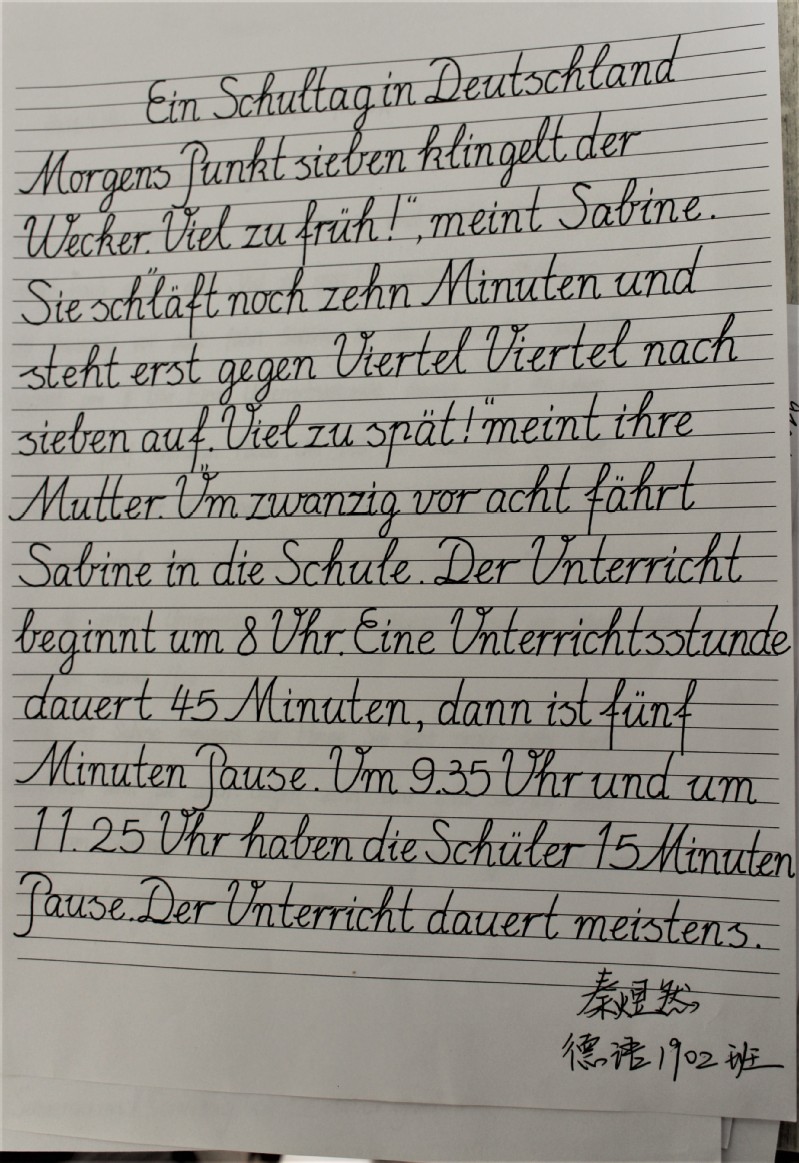 Ein Schultag in Deutschland
Morgens Punkt sieben klingelt der
Wecker. „Viel zu früh!“, meint Sabine.
Sie schläft noch zehn Minuten und
steht erst gegen Viertel Viertel nach
sieben auf. „Viel zu spät!“ meint ihre
Mutter. Um zwanzig vor acht fährt
Sabine in die Schule. Der Unterricht
beginnt um 8 Uhr. Eine Unterrichtsstunde
dauert 45 Minuten, dann ist fünf
Minuten Pause. Um 9.35 Uhr und um
11.25 Uhr haben die Schüler 15 Minuten
Pause. Der Unterricht dauert meistens.
秦煜然
德语1902班